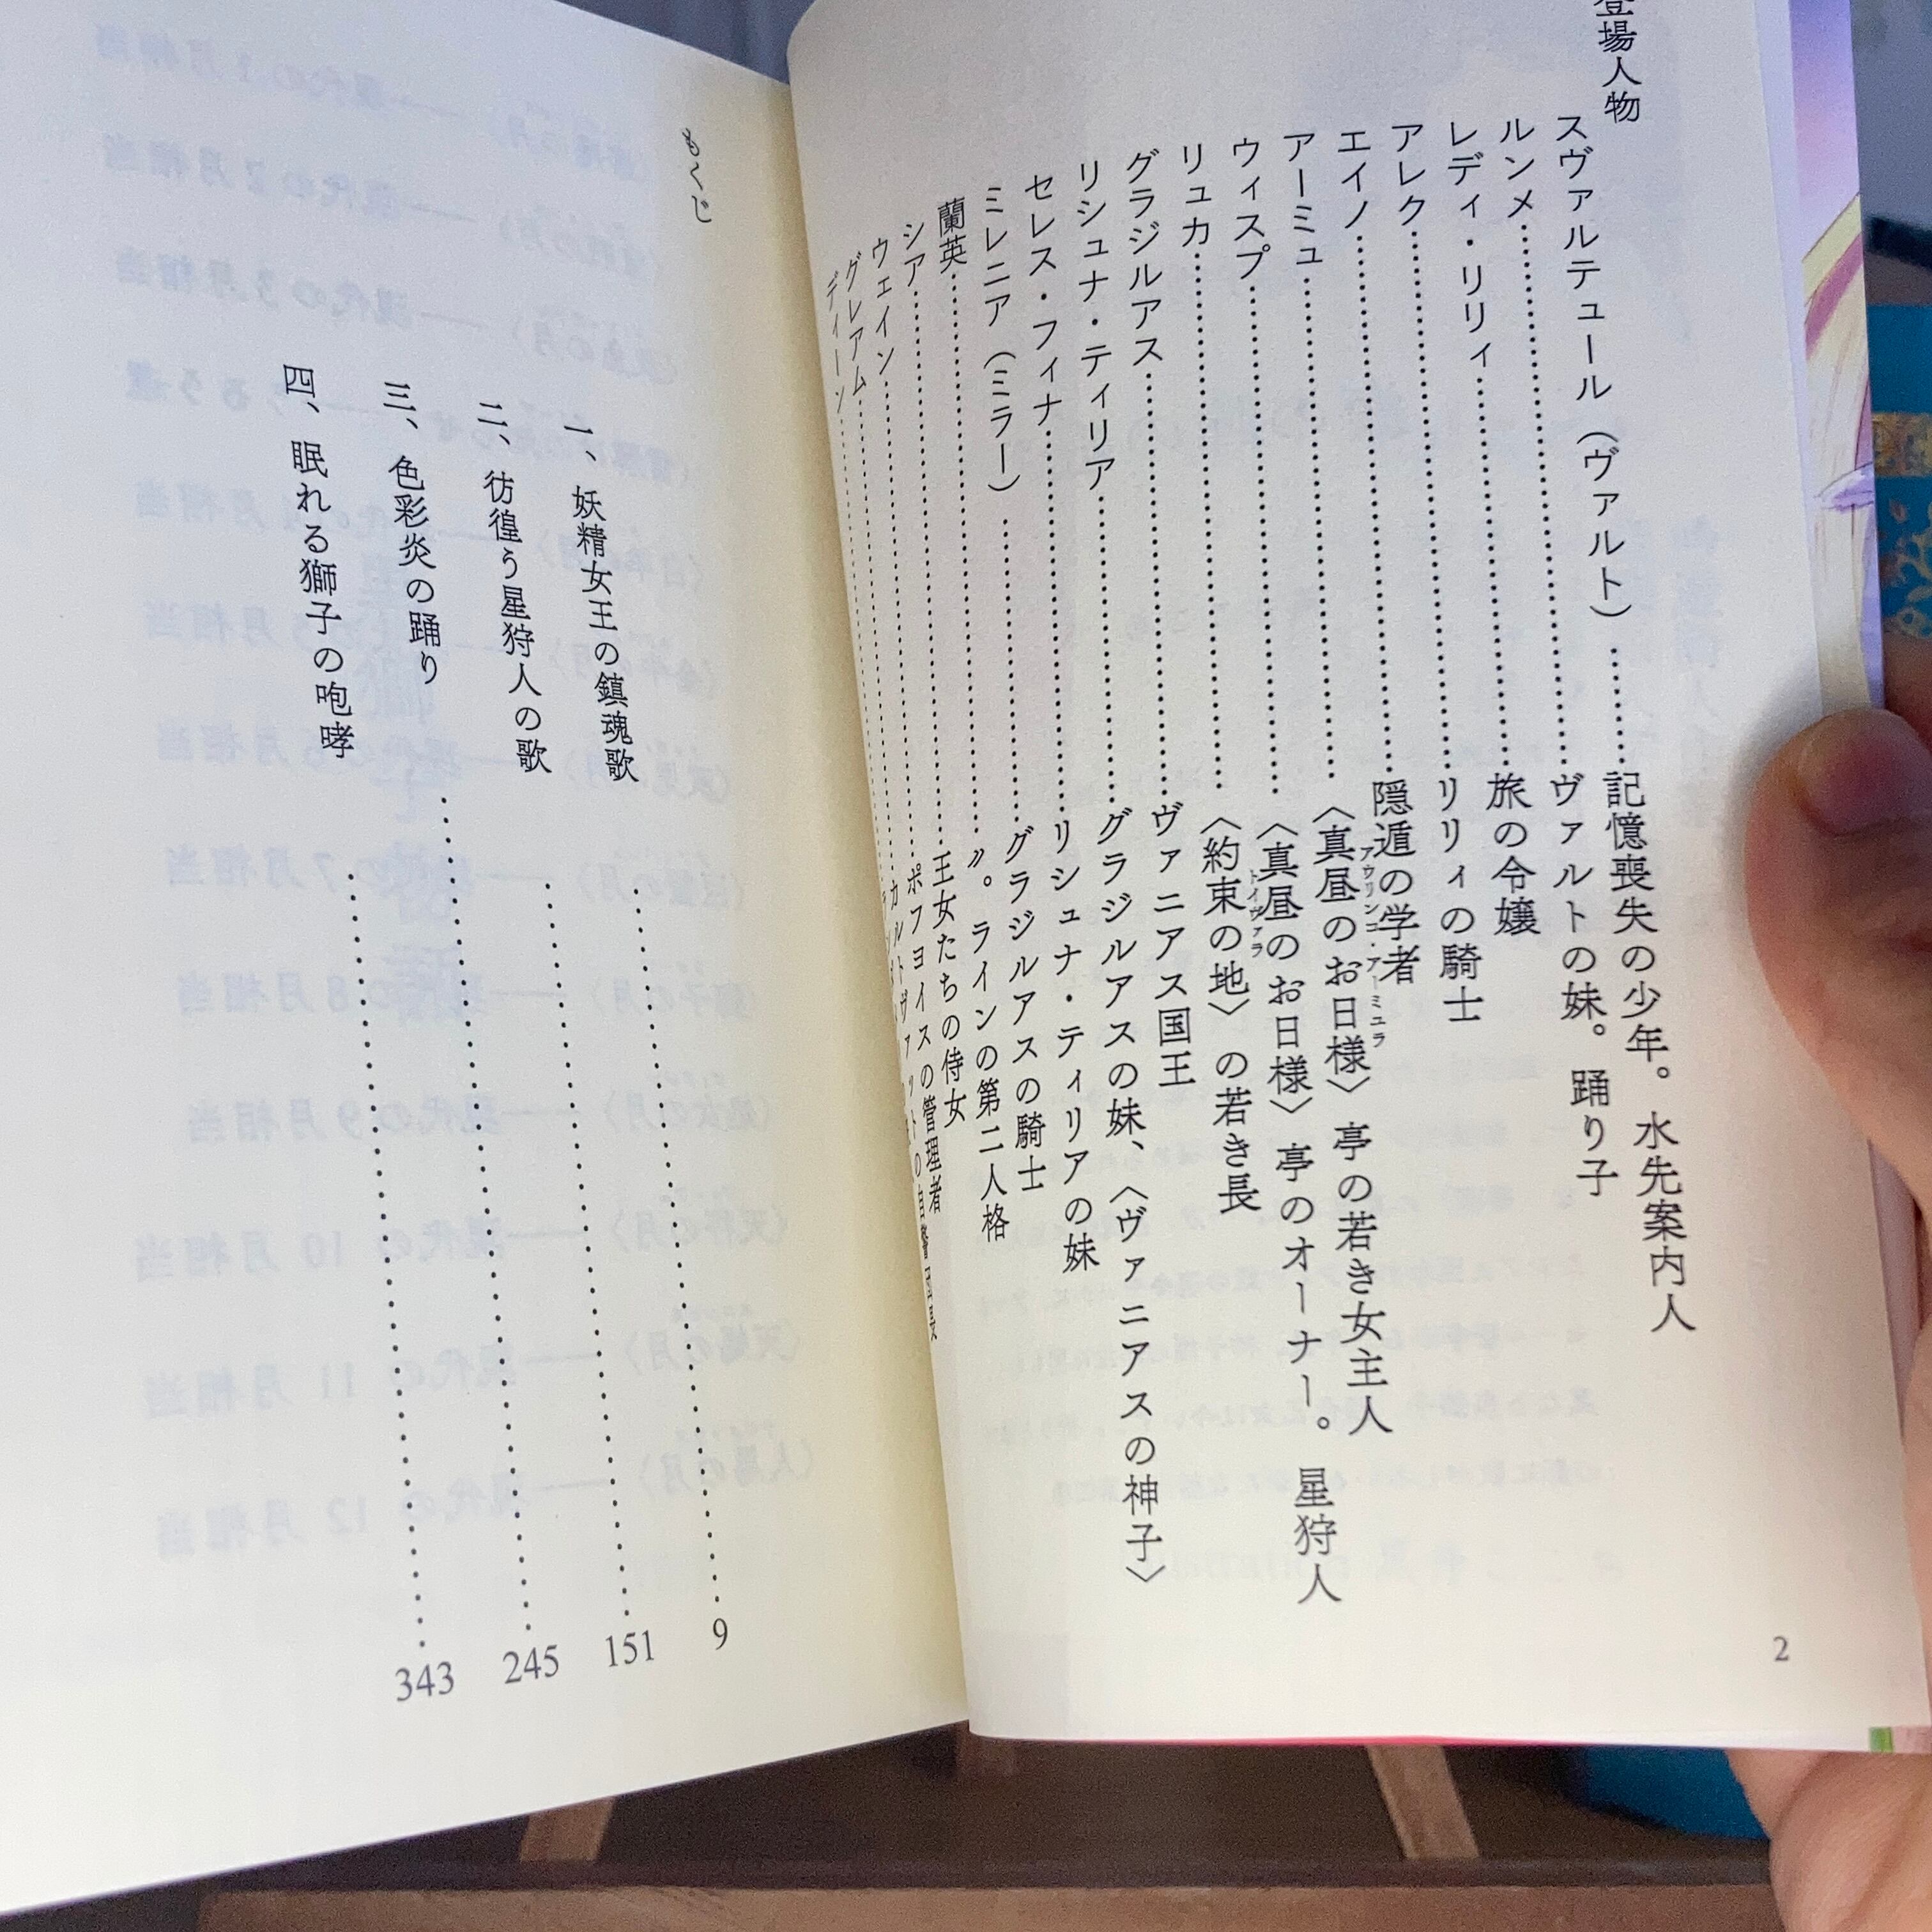 登場人物
スヴァルテュール（ヴァルト）……記憶喪失の少年。水先案内人
ルンメ……ヴァルトの妹。踊り子
レディ・リリィ……旅の令嬢
アレク……リリィの騎士
エイノ……隠遁の学者
アーミュ……〈真昼のお日様〉亭の若き女主人
アウリンコ・アーミュラ
ウィスプ……〈真昼のお日様〉亭のオーナー。星狩人
リュカ……〈約束の地〉の若き長
トイヴァラ
グラジルアス……ヴァニアス国王
リシュナ・ティリア……グラジルアスの妹、〈ヴァニアスの神子〉
セレス・フィナ……リシュナ・ティリアの妹
ミレニア（ミラー）……グラジルアスの騎士
蘭英……〃。ラインの第二人格
シア……王女たちの侍女
ウェイン……ポフヨイスの管理者
グレアム……
ディーン……
2
もくじ
一、妖精女王の鎮魂歌……9
二、彷徨う星狩人の歌……151
三、色彩炎の踊り……245
四、眠れる獅子の咆哮……343